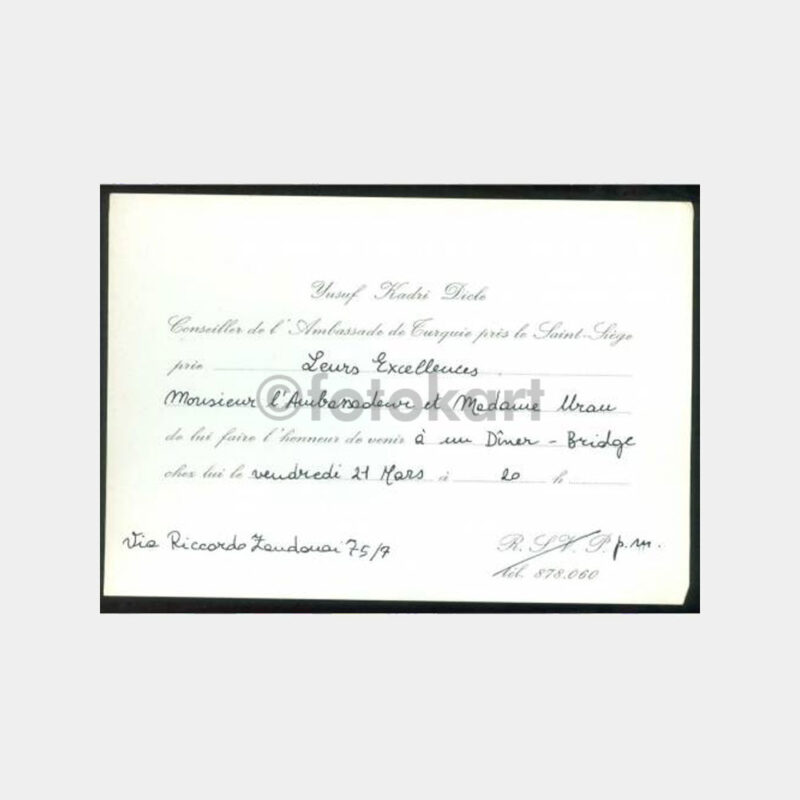 Yusuf Kadri Dicle
Conseiller de l'Ambassade de Turquie près le Saint-Siège
prie Leurs Excellences
Monsieur l'Ambassadeur et Madame Uran
de lui faire l'honneur de venir à un Dîner - Bridge
chez lui le vendredi 21 Mars à 20 h
Via Riccardo Zandonai 75/7
R. S. V. P. p.m.
tél. 878.060
©fotokart